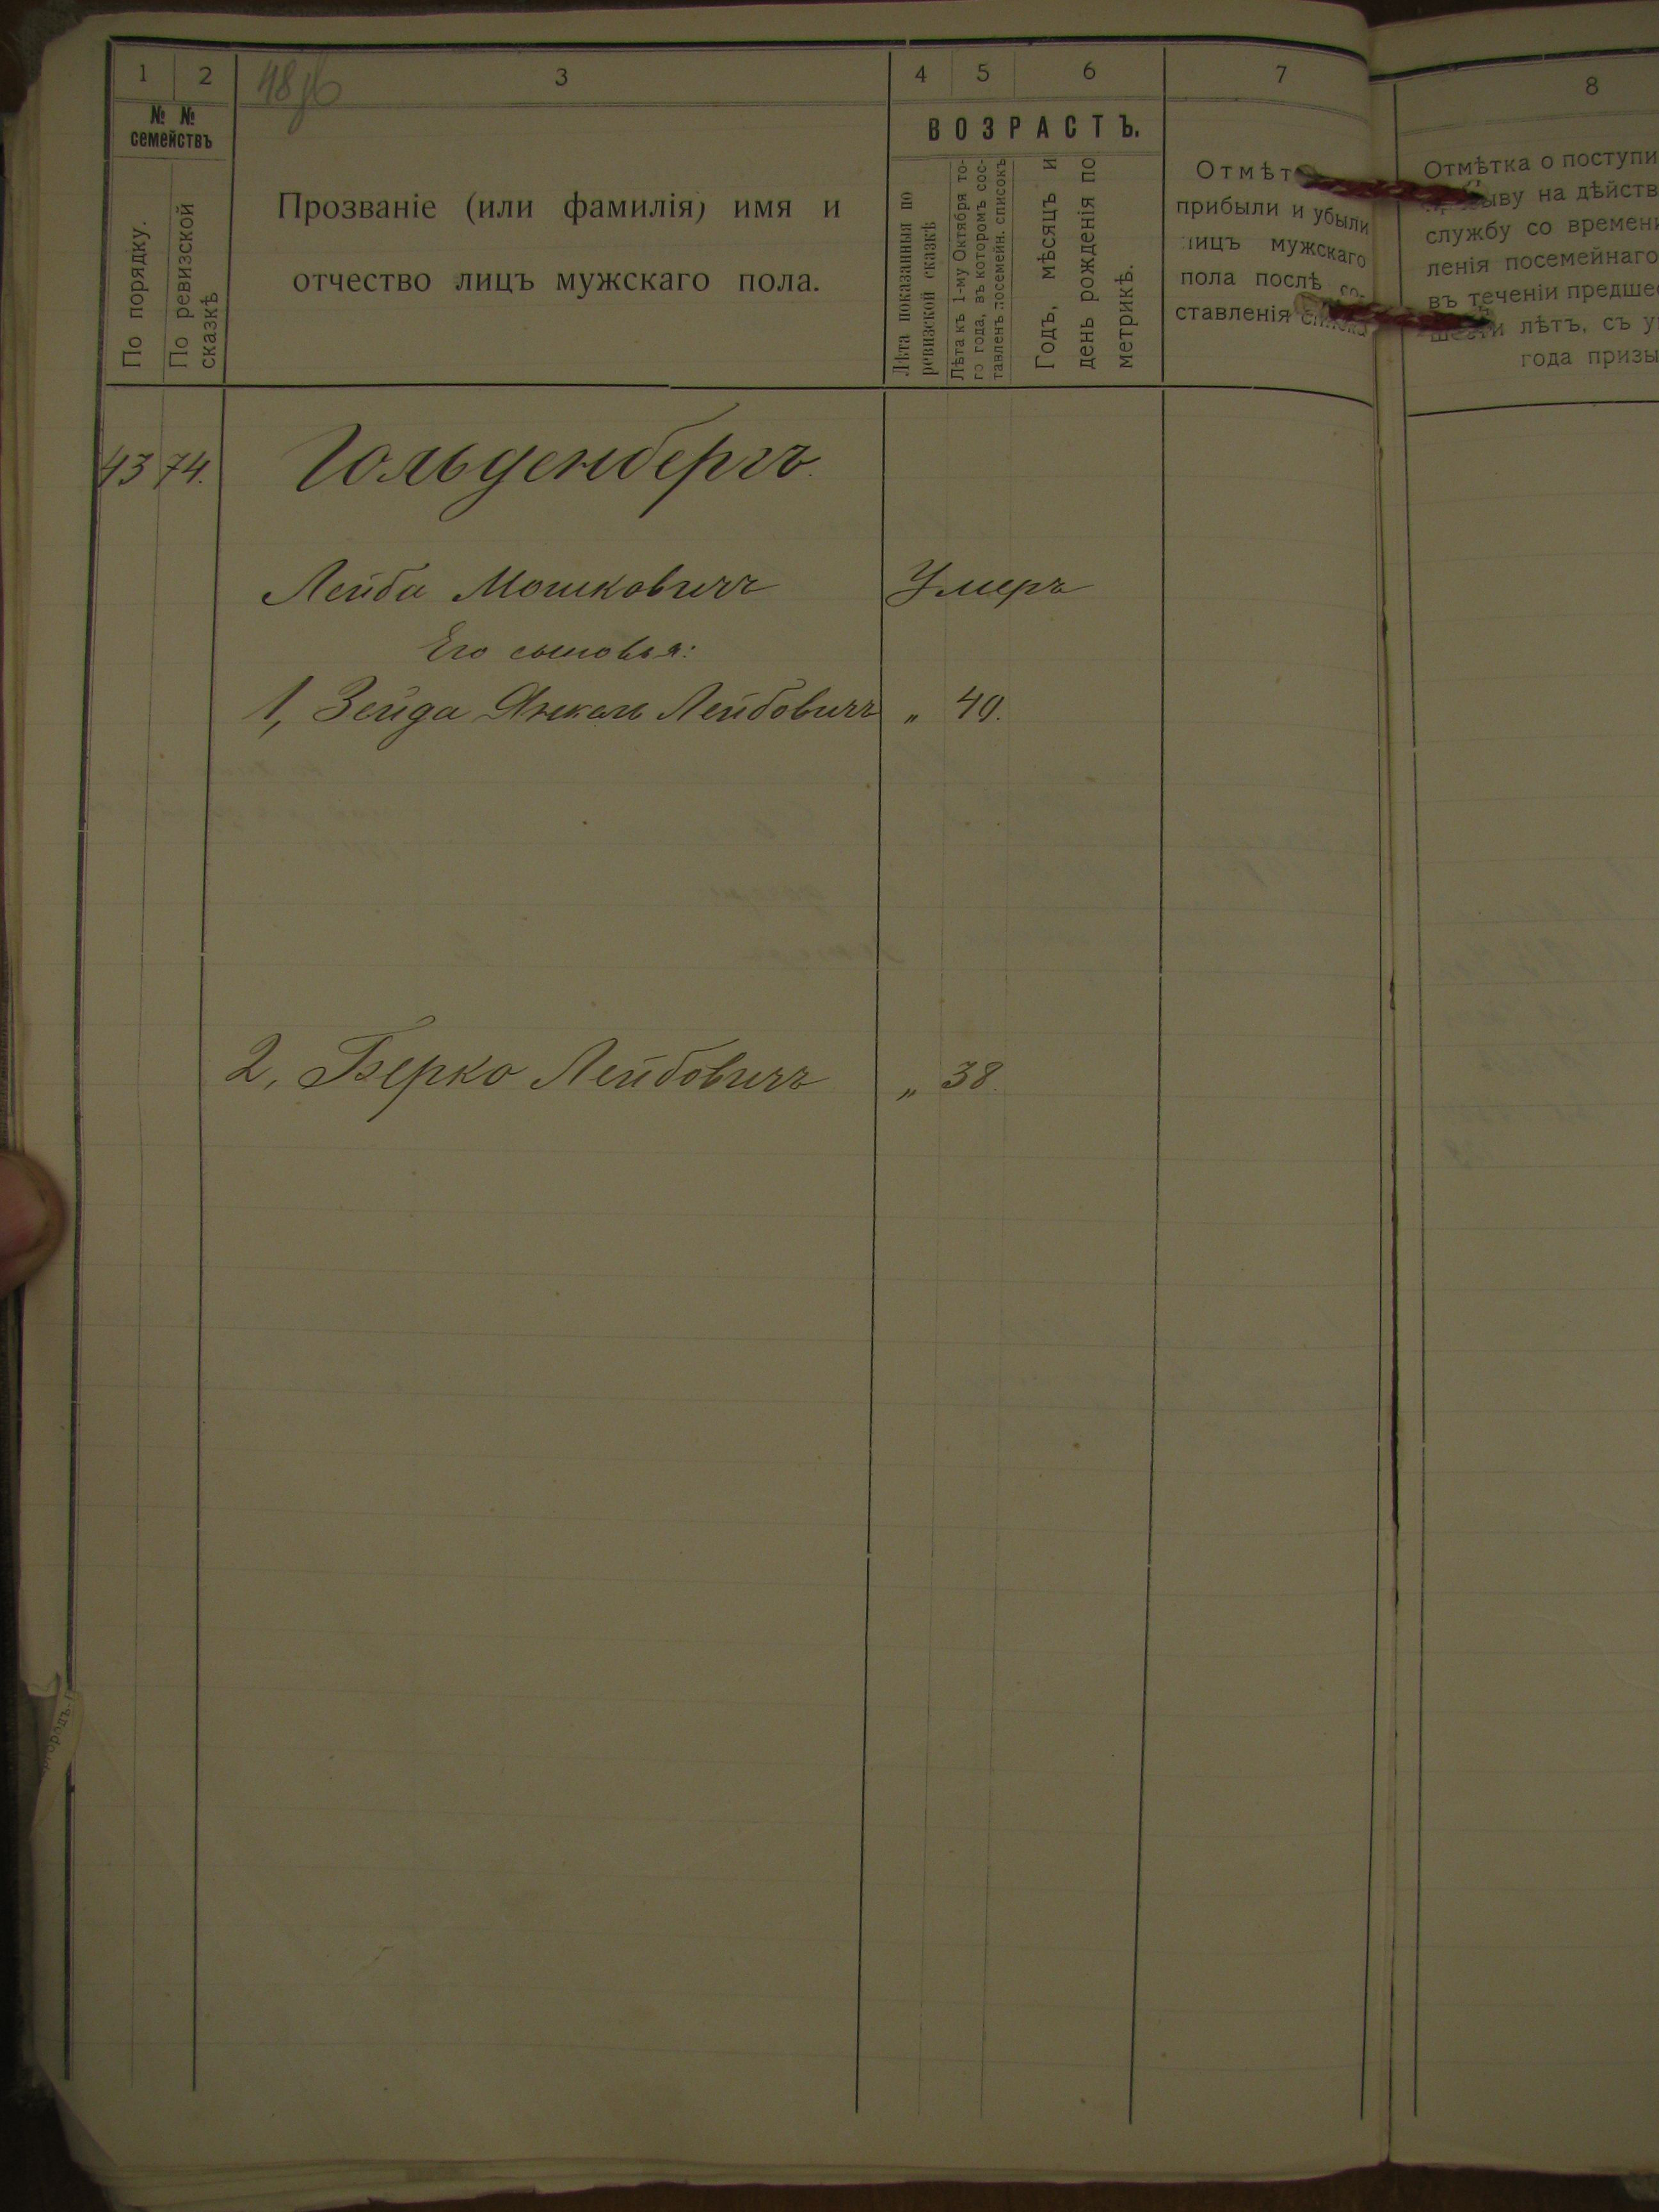 1 2 3 4 5 6 7
№ № семействъ
По порядку.
По ревизской сказкѣ
Прозваніе (или фамилія) имя и
отчество лицъ мужскаго пола.
ВОЗРАСТЪ.
Лѣта показанныя по
ревизской сказкѣ
Лѣта къ 1-му Октября то-
го года, въ которомъ сос-
тавленъ посемейн. списокъ
Годъ, мѣсяцъ и
день рожденія по
метрикѣ.
Отмѣт
прибыли и убыли
лицъ мужскаго
пола послѣ со-
ставленія списка
8
Отмѣтка о поступи
ыву на дѣйств
службу со времени
ленія посемейнаго
въ теченіи предше
шести лѣтъ, съ у
года призы
43 74. Гольденбергъ.
Лейба Мошковичъ Умеръ
Его сыновья:
1, Зейда Янкель Лейбовичъ „ 40.
2, Берко Лейбовичъ „ 38.